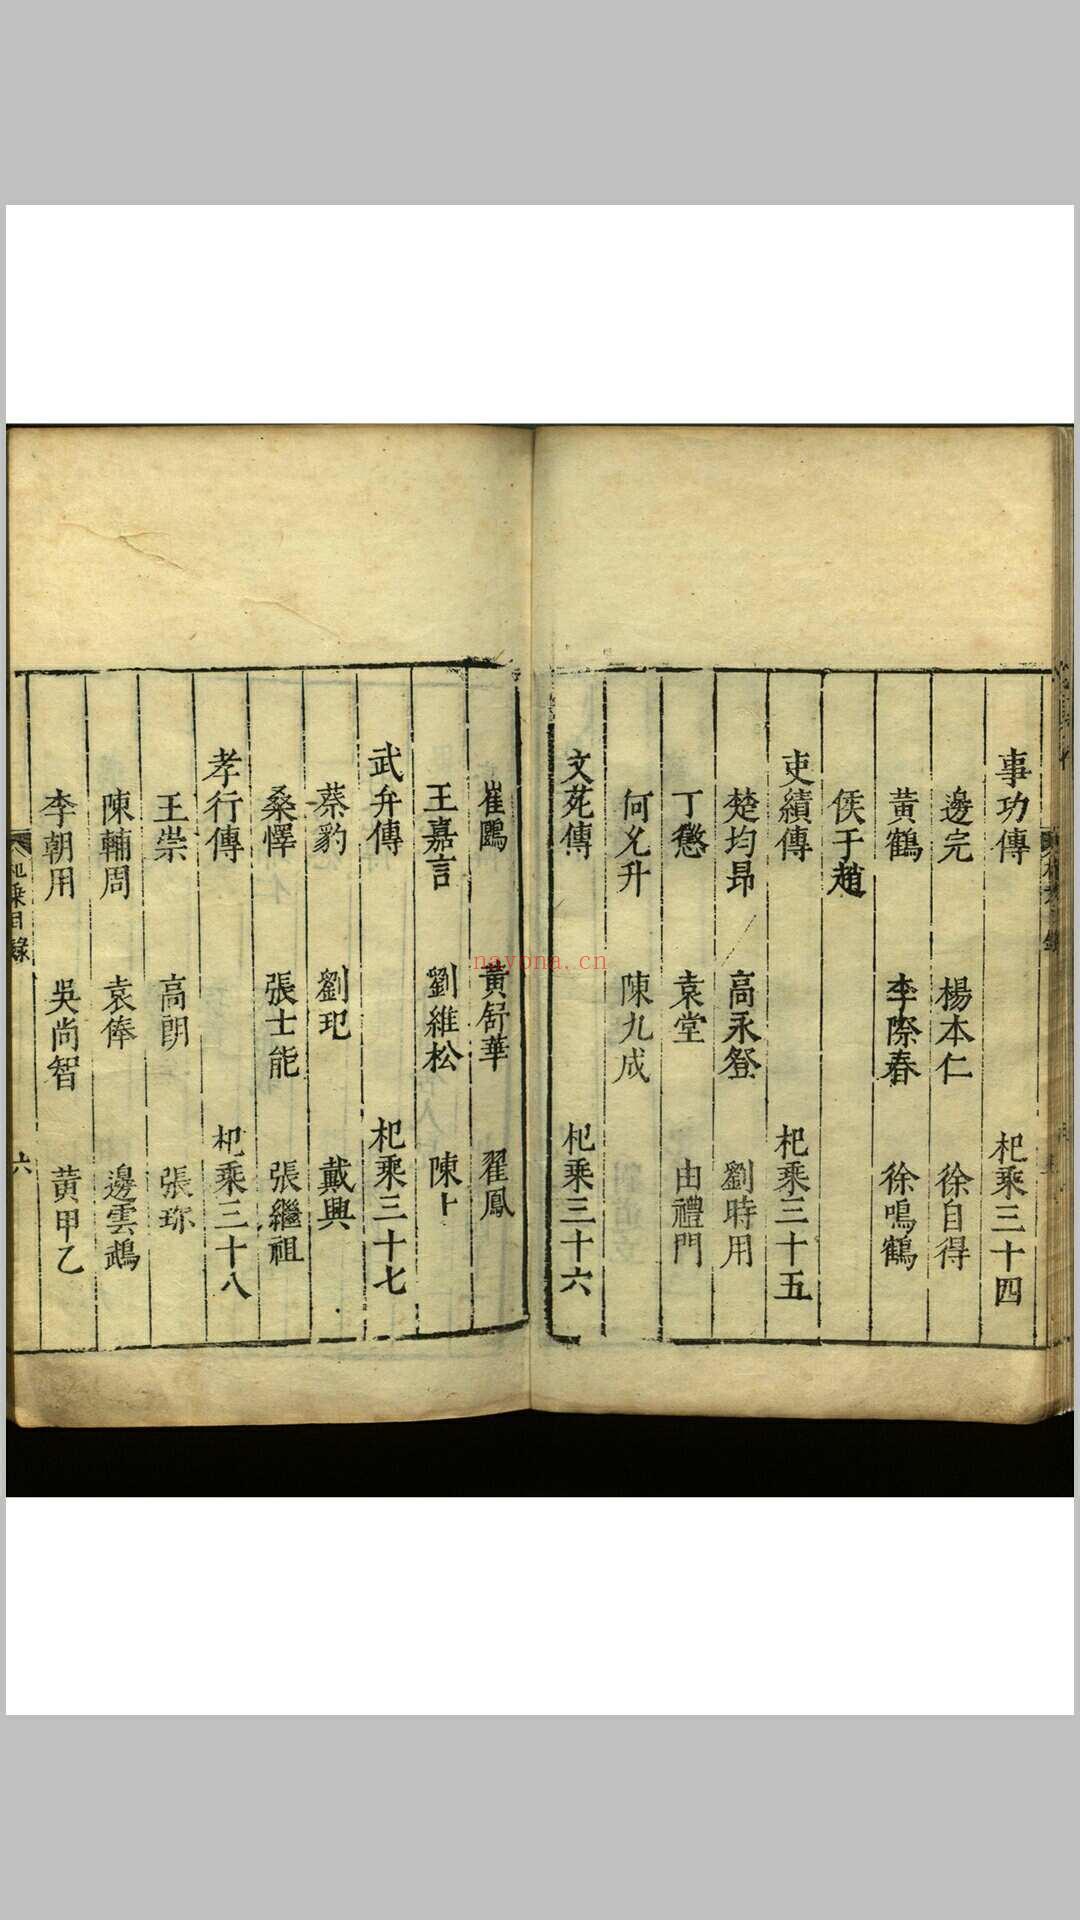 事功傳 杞乘三十四
邊完 楊本仁 徐自得
黃鶴 李際春 徐鳴鶴
侯于趙
吏績傳 杞乘三十五
楚均昂 高永登 劉時用
丁懲 袁堂 由禮門
何允升 陳九成
文苑傳 杞乘三十六
崔鷗 黃舒華 翟鳳
王嘉言 劉維松 陳上
武弁傳 杞乘三十七
蔡豹 劉玘 戴興
桑懌 張士能 張繼祖
孝行傳 杞乘三十八
王崇 高朗 張珎
陳輔周 袁俸 邊雲鵡
李朝用 吳尚智 黃甲乙
杞乘目錄 六
nayona.cn